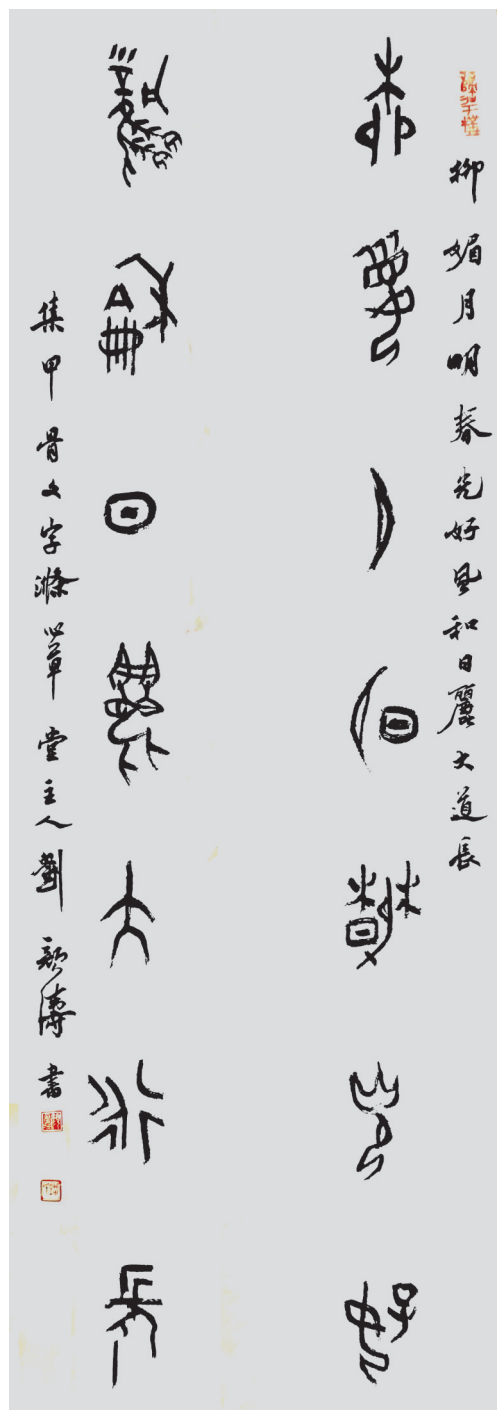 柳媚月明春光好風和日麗大道長
柳媚月明春光好
風龢日麗大道長
集甲骨文字滌心草堂主人劉顏濤書